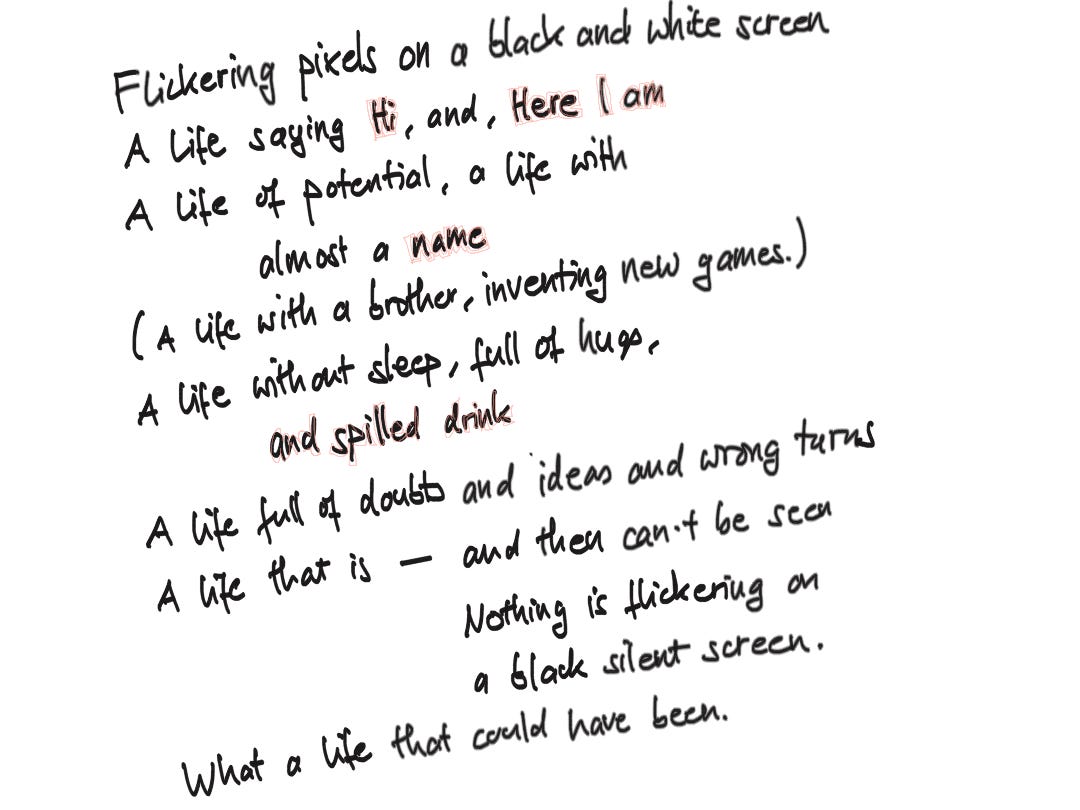 Flickering pixels on a black and white screen
A life saying Hi, and, Here I am
A life of potential, a life with
almost a name
(A life with a brother, inventing new games.)
A life without sleep, full of hugs,
and spilled drink
A life full of doubts and ideas and wrong turns
A life that is — and then can't be seen
Nothing is flickering on
a black silent screen.
What a life that could have been.